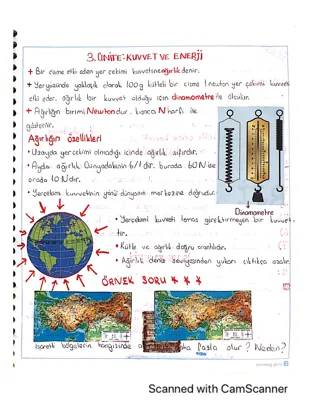 3. ÜNİTE: KUVVET VE ENERJİ
+ Bir cisme etki eden yer çekimi kuvvetine ağırlık denir.
+ Yeryüzünde yaklaşık olarak 100 g kütleli bir cisme 1 newton yer çekimi kuvveti
etki eder. Ağırlık bir kuvvet olduğu için dinamometre ile ölçülür.
+ Ağırlığın birimi Newtondur. Kısaca N harfi ile
gösterilir.
Ağırlığın Özellikleri
• Uzayda yer çekimi olmadığı içinde ağırlık sıfırdır.
• Ayda ağırlık Dünyadakinin 6/1 dir. burada 60 N ise
orada 10 N dır.
• Yerçekimi kuvvetinin yönü dünyanın merkezine doğrudur.
Dinamometre
• Yerçekimi kuvveti temas gerektirmeyen bir kuvvet-
tir.
• Kütle ve ağırlık doğru orantılıdır.
• Ağırlık deniz seviyesinden yukarı çıktıkça azalır.
ÖRNEK SORU
işaretli bölgelerin hangisinde daha fazla olur? Neden?
Scanned with CamScanner